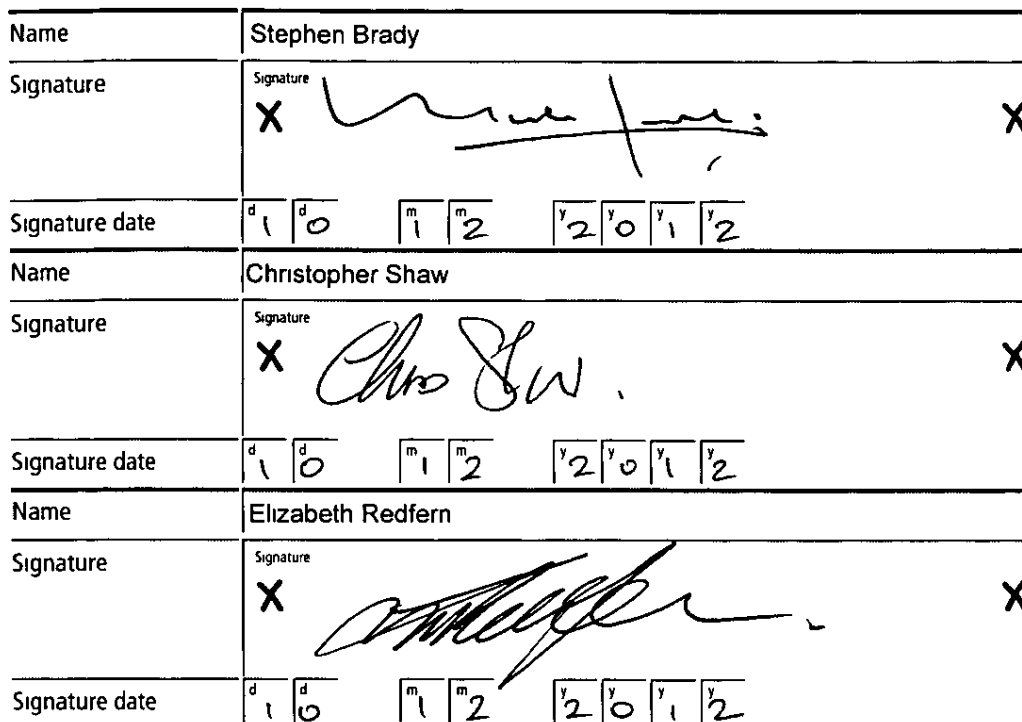 Name Stephen Brady
Signature Signature
X X
Signature date d 1 d 0 m 1 m 2 y 2 y 0 y 1 y 2
Name Christopher Shaw
Signature Signature
X Chris Shaw. X
Signature date d 1 d 0 m 1 m 2 y 2 y 0 y 1 y 2
Name Elizabeth Redfern
Signature Signature
X X
Signature date d 1 d 0 m 1 m 2 y 2 y 0 y 1 y 2